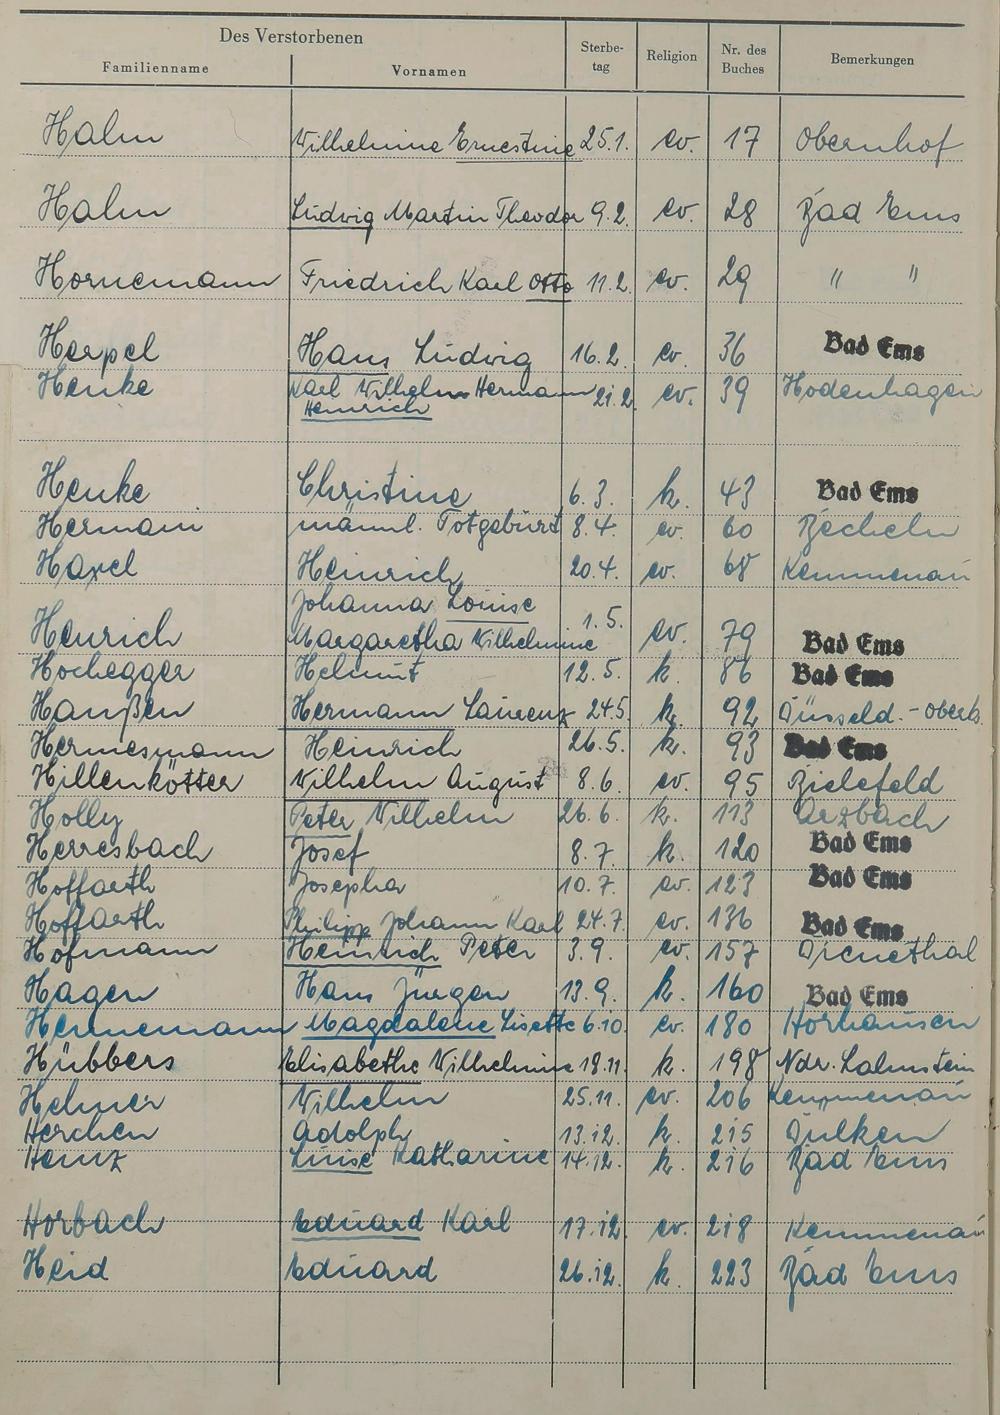 Des Verstorbenen
Familienname Vornamen Sterbe-tag Religion Nr. des Buches Bemerkungen
Halm Wilhelmine Ernestine 25.1. ev. 17 Obernhof
Halm Ludwig Martin Theodor 9.2. ev. 28 Bad Ems
Hornemann Friedrich Karl Otto 11.2. ev. 29 " "
Herpel Hans Ludwig 16.2. ev. 36 Bad Ems
Henke Karl Wilhelm Hermann 21.2. ev. 39 Hodenhagen
Heinrich
Henke Christine 6.3. k. 43 Bad Ems
Hermani männl. Totgeburt 8.4. ev. 60 Becheln
Haxel Heinrich 20.4. ev. 68 Kemmenau
Johanna Louise
Henrich Margaretha Wilhelmine 1.5. ev. 79 Bad Ems
Hochegger Helmut 12.5. k. 86 Bad Ems
Haußen Hermann Laurenz 24.5. k. 92 Düsseld.-Oberk.
Hermesmann Heinrich 26.5. k. 93 Bad Ems
Hillenkötter Wilhelm August 8.6. ev. 95 Bielefeld
Holly Peter Wilhelm 26.6. k. 113 Arzbach
Herresbach Josef 8.7. k. 120 Bad Ems
Hoffarth Josepha 10.7. ev. 123 Bad Ems
Hoffarth Philipp Johann Karl 24.7. ev. 136 Bad Ems
Hofmann Heinrich Peter 3.9. ev. 157 Dienethal
Hagen Hans Jürgen 13.9. k. 160 Bad Ems
Hennemann Magdalene Lisette 6.10. ev. 180 Horhausen
Hübbers Elisabethe Wilhelmine 18.11. k. 198 Ndr. Lahnstein
Helmer Wilhelm 25.11. ev. 206 Kemmenau
Herchen Adolph 13.12. k. 215 Dülken
Heinz Luise Katharine 14.12. k. 216 Bad Ems
Horbach Eduard Karl 17.12. ev. 218 Kemmenau
Heid Eduard 26.12. k. 223 Bad Ems